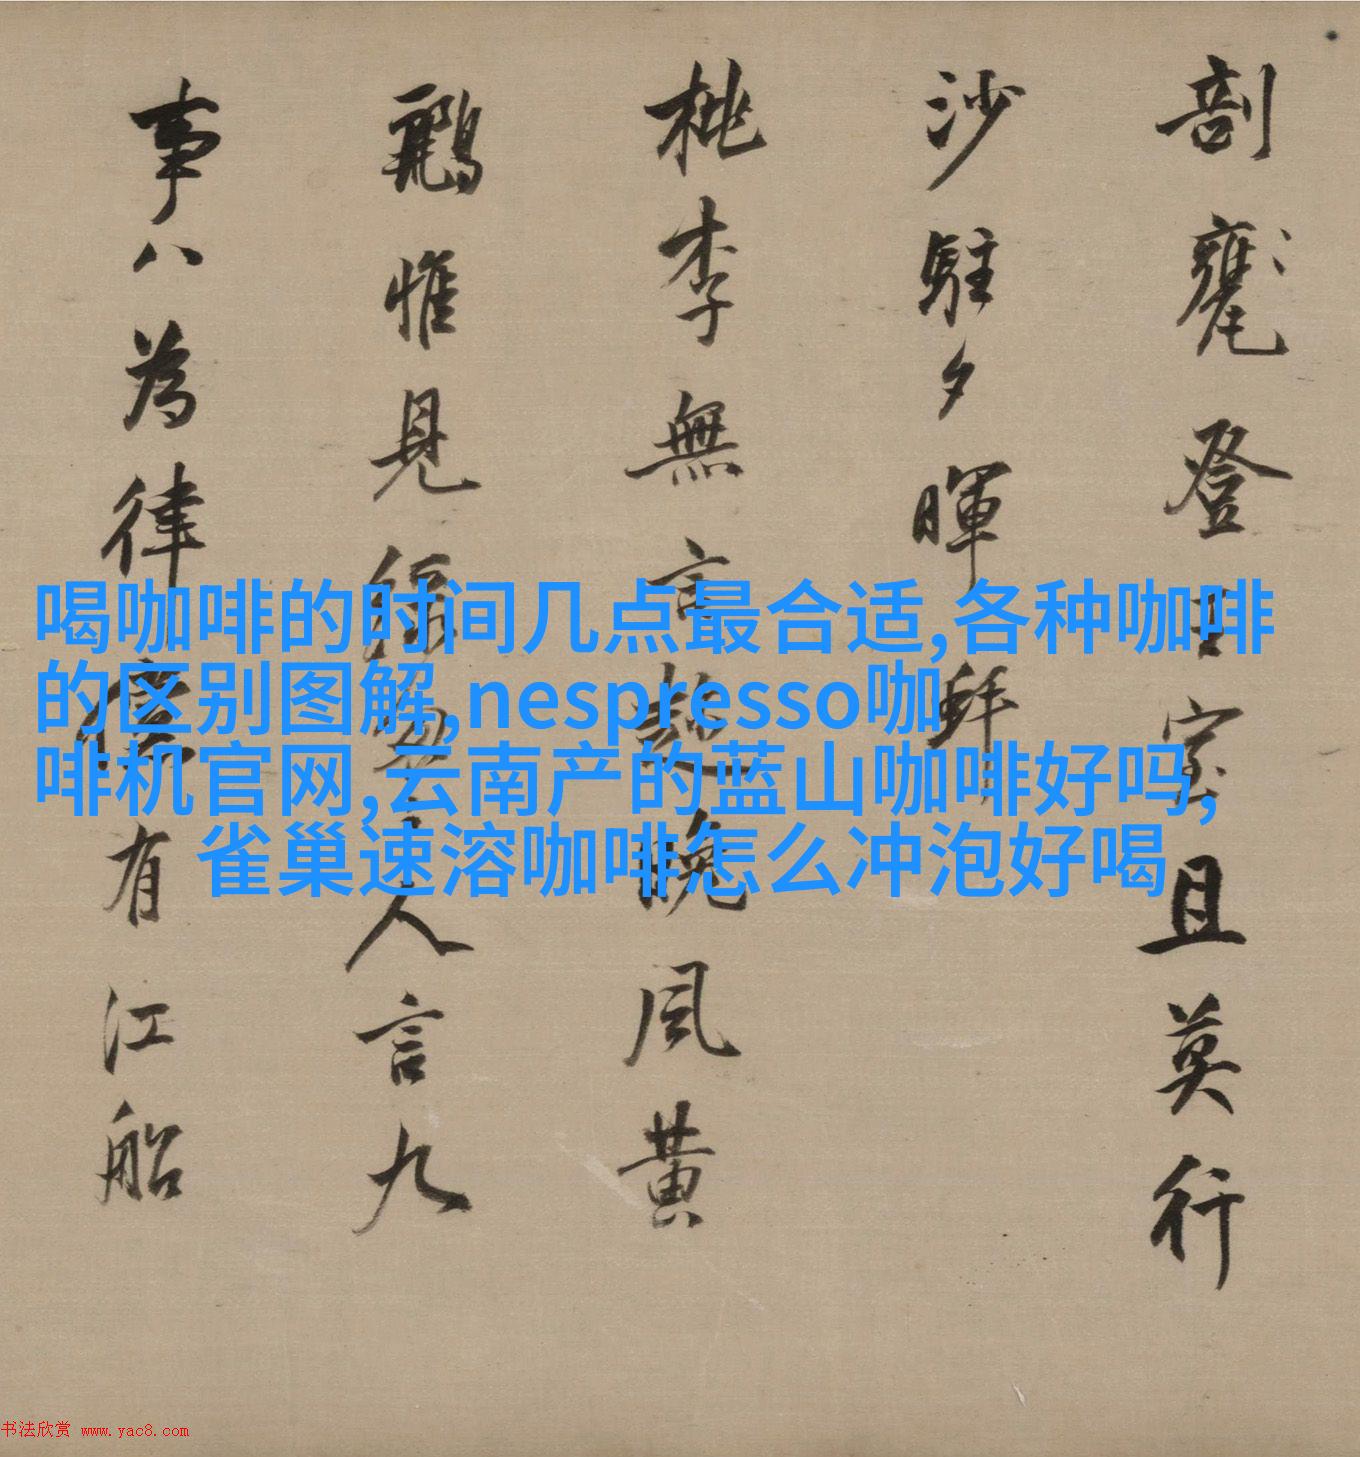 剖甕登室且莫行
沙駐夕暉
桃李無言趂晚風黃
鸝惟見緑人言九
事八為律儻有江船
喝咖啡的时间几点最合适,各种咖啡
的区别图解,nespresso咖
啡机官网,云南产的蓝山咖啡好吗,
雀巢速溶咖啡怎么冲泡好喝
书法欣赏 www.yac8.com